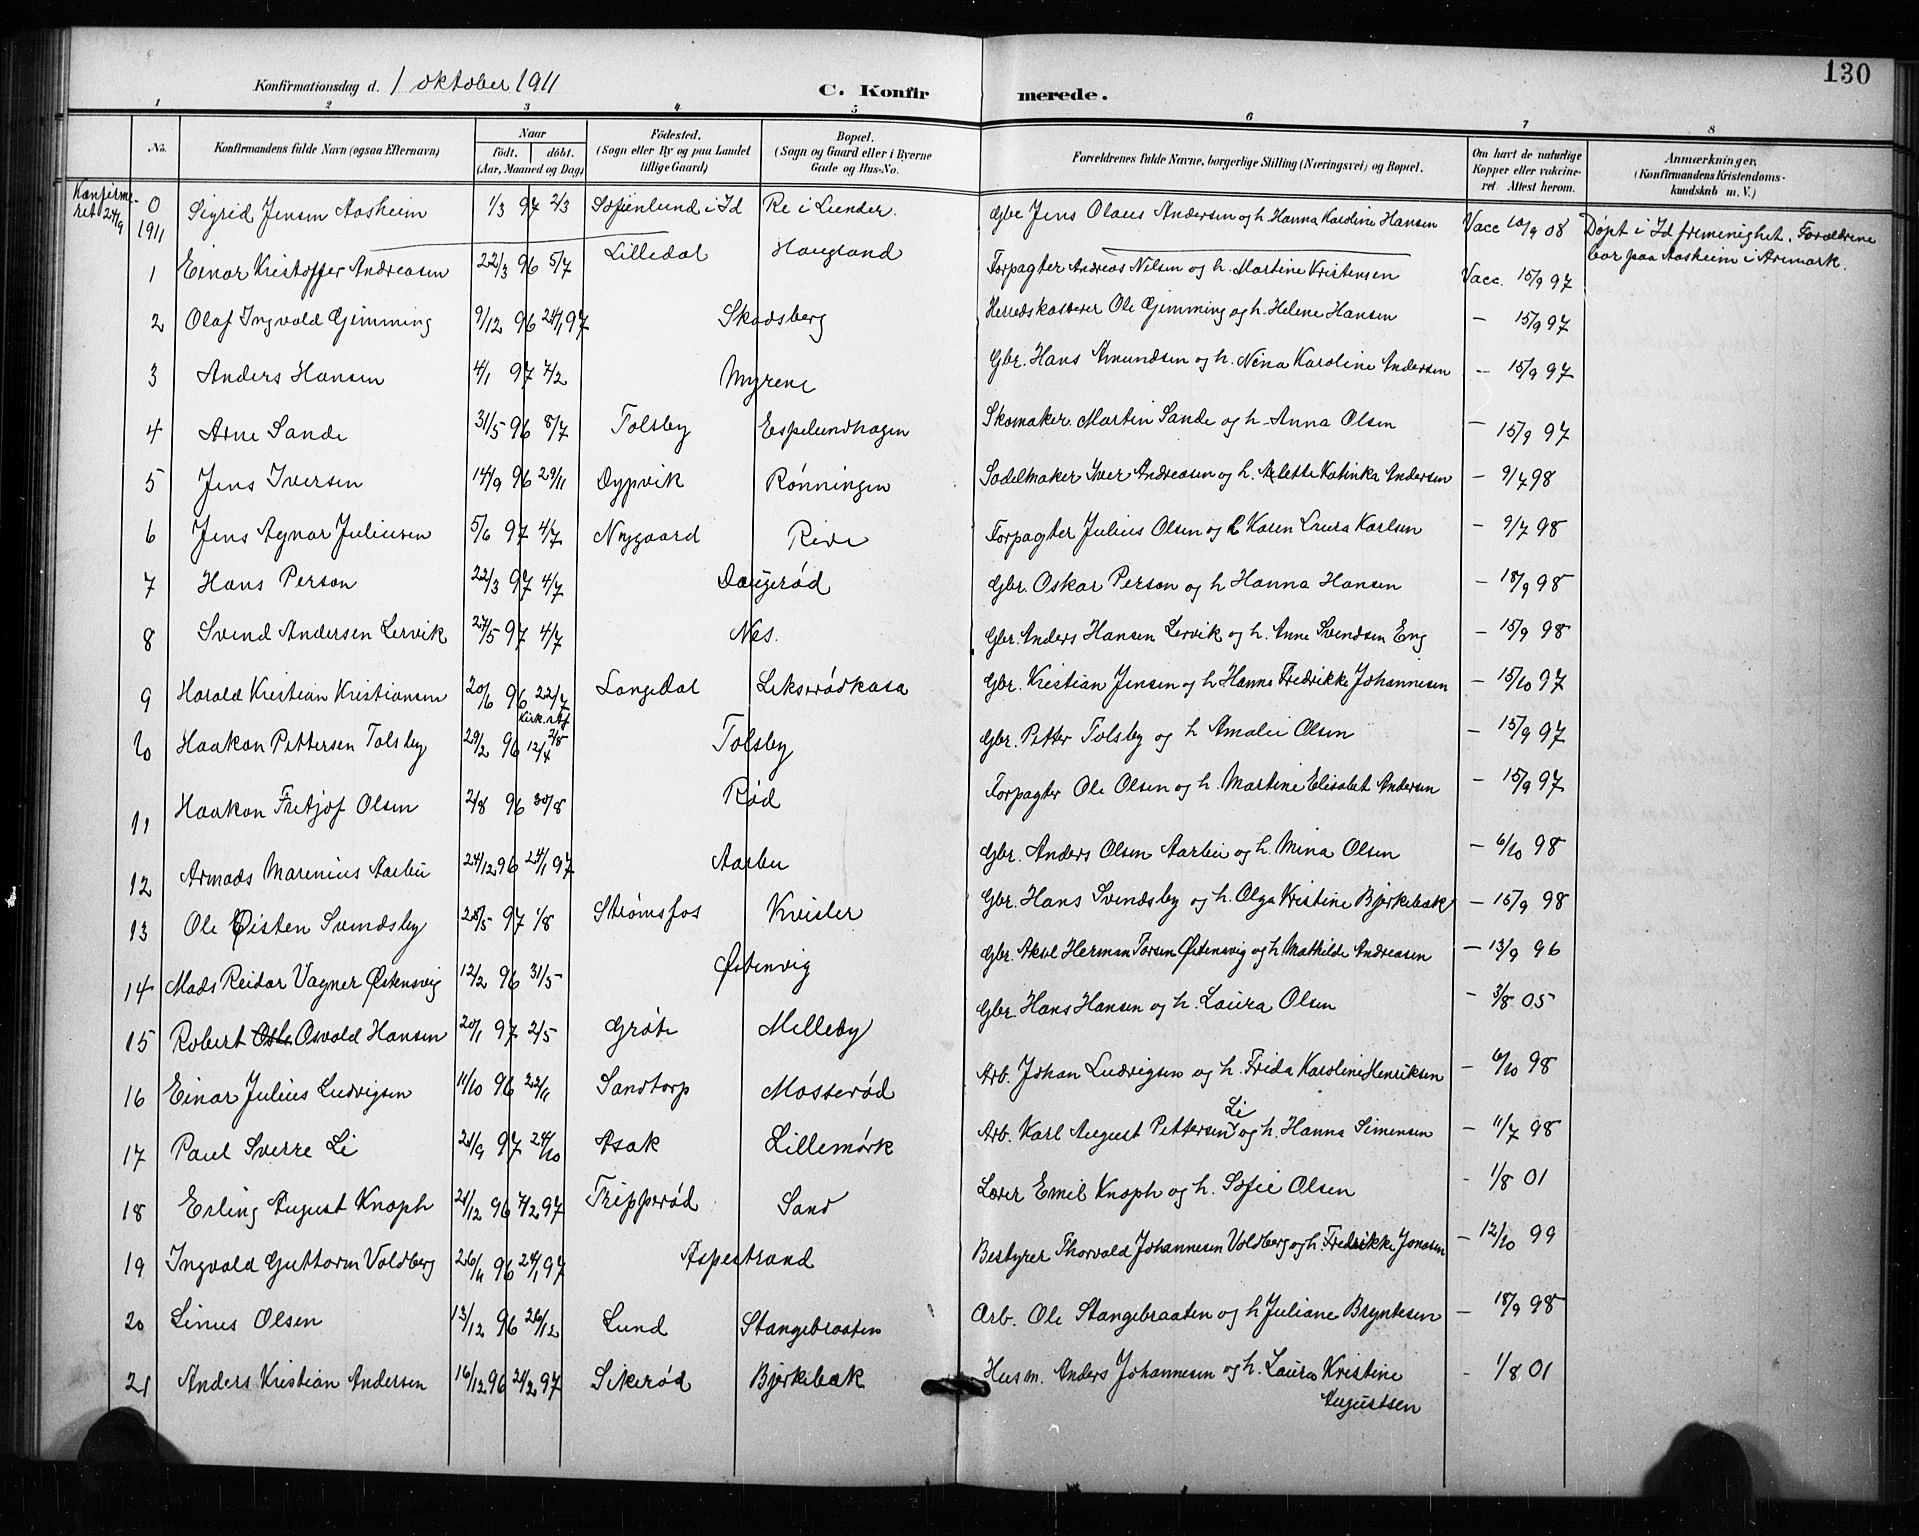 130
Konfirmationsdag d. 1 oktober 1911
C. Konfirmerede.
1 2 3 4 5 6 7 8
No. Konfirmandens fulde Navn (ogsaa Efternavn) Naar födt. döbt. (Aar, Maaned og Dag) Födested. (Sogn eller By og paa Landet tillige Gaard) Bopæl. (Sogn og Gaard eller i Byerne Gade og Hus-No. Forældrenes fulde Navne, borgerlige Stilling (Næringsvei) og Bopæl. Om havt de naturlige Kopper eller vaccineret. Attest herom. Anmærkninger, (Konfirmandens Kristendomskundskab m. V.)
Konfirmeret 24/9 1911 0 Sigrid Jensen Aasheim 1/3 97 2/3 Sofienlund i Id Re i Lunder. Gbr Jens Olaus Andersen og h. Hanna Karoline Hansen Vacc 10/9 08 Døpt i Id frimenighet. Forældrene bor paa Aasheim i Aremark.
1 Einar Kristoffer Andreasen 22/3 96 5/7 Lilledal Haugland Forpagter Andreas Nilsen og h. Martine Kristensen Vacc. 15/9 97
2 Olaf Ingvald Gimming 9/12 96 24/1 97 Skodsberg Herredskasserer Ole Gimming og h. Helene Hansen — 15/9 97
3 Anders Hansen 4/1 97 7/2 Myrene Gbr. Hans Amundsen og h. Nina Karoline Andersen — 15/9 97
4 Arne Sande 31/5 96 8/7 Tolsby Espelundhagen Skomaker Martin Sande og h. Anna Olsen — 15/9 97
5 Jens Iversen 14/9 96 29/11 Dypvik Rønningen Sadelmaker Iver Andreasen og h. Alette Katinka Andersen — 9/7 98
6 Jens Agnar Juliussen 5/6 97 4/7 Nygaard Reve Forpagter Julius Olsen og h Karen Laura Karlsen — 9/7 98
7 Hans Person 22/3 97 4/7 Daugerød Gbr. Oskar Person og h Hanna Hansen — 18/9 98
8 Svend Andersen Lervik 27/5 97 4/7 Nes. Gbr. Anders Hansen Lervik og h. Anne Svendsen Eng — 15/9 98
9 Harald Kristian Kristiansen 20/6 96 22/7 Langedal Lekserødkasa Gbr. Kristian Jensen og h Hanna Fredrikke Johannesen — 15/10 97
10 Haakon Pettersen Tolsby 29/2 96 12/4 2/8 Tolsby Gbr. Petter Tolsby og h Amalie Olsen — 15/9 97
11 Haakon Fritjof Olsen 2/8 96 30/8 Rød Forpagter Ole Olsen og h. Martine Elisabet Andersen — 15/9 97
12 Armods Marenius Aarbu 24/12 96 24/1 97 Aarbu Gbr. Anders Olsen Aarbu og h. Mina Olsen — 6/10 98
13 Ole Eisten Svendsby 28/5 97 1/8 Strømsfos Kvisler Gbr. Hans Svendsby og h. Olga Kristine Bjørkebæk — 15/9 98
14 Mads Reidar Vagner Østensvig 12/2 96 31/5 Østenvig Gbr. Aksel Herman Torsen Østensvig og h. Mathilde Andreasen — 13/9 96
15 Robert Osvald Hansen 20/1 97 2/5 Grøte Milleby Gbr. Hans Hansen og h. Laura Olsen — 3/8 05
16 Einar Julius Ludvigsen 11/10 96 22/11 Sandtorp Mosserød Arb. Johan Ludvigsen og h. Frida Karoline Henriksen — 6/10 98
17 Paul Sverre Li 21/9 97 24/10 Asak Lillemørk Arb. Karl August Pettersen Li og h. Hanna Simensen — 11/7 98
18 Erling August Knoph 21/12 96 7/2 97 Tripperød Sand Lærer Emil Knoph og h. Sofie Olsen - 1/8 01
19 Ingvald Guttorm Voldberg 26/11 96 24/1 97 Aspestrand Bestyrer Thorvald Johannesen Voldberg og h. Fredrikke Jonasen — 12/10 99
20 Linus Olsen 13/12 96 26/12 Lund Stangebraaten Arb. Ole Stangebraaten og h Juliane Bryntesen — 18/9 98
21 Anders Kristian Andersen 16/12 96 21/2 97 Sikerød Bjørkebæk Husm. Anders Johannesen og h. Laura Kristine Augustsen - 1/8 01